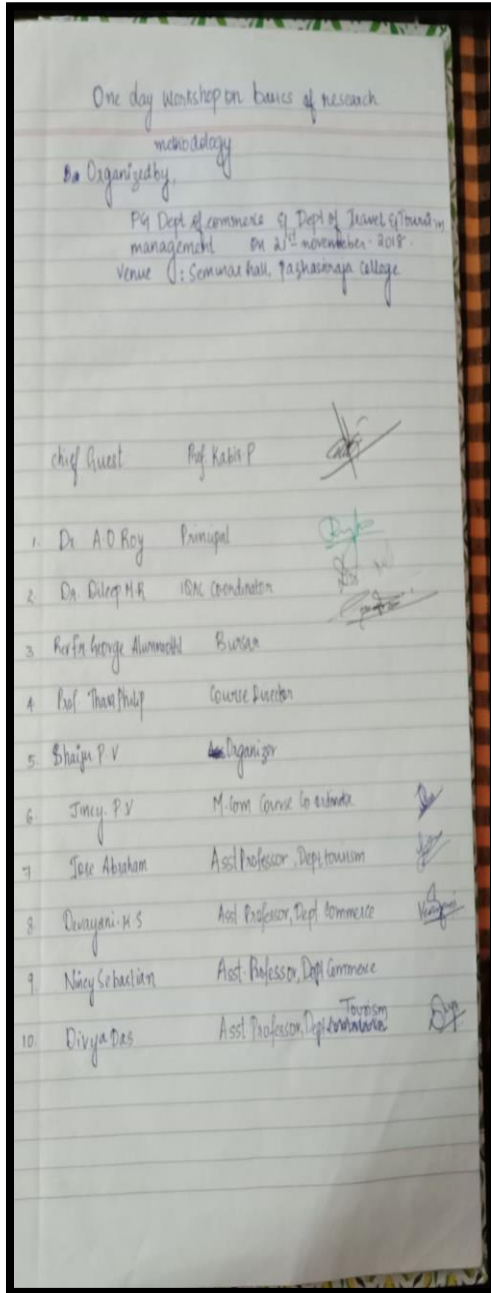 One day Workshop on basics of research
methodology
Organized by,
PG Dept of commerce & Dept of Travel & Tourism
management on 21st november 2018.
Venue : Seminar hall, Pazhassiraja College
chief Guest Prof. Kabir P
1. Dr A.O Roy Principal
2. Dr. Dileep M.R IQAC Coordinator
3 Rev Fr George Bursar
4 Prof. Philip Course Director
5. Shaiju P.V Organizor
6 Jincy. P.V M.Com Course Co ordinator
7 Jose Abraham Asst Professor, Dept tourism
8. Devayani. K S Asst Professor, Dept Commerce
9 Nincy Sebastian Asst. Professor, Dept Commerce
10. Divya Das Asst Professor, Dept Tourism